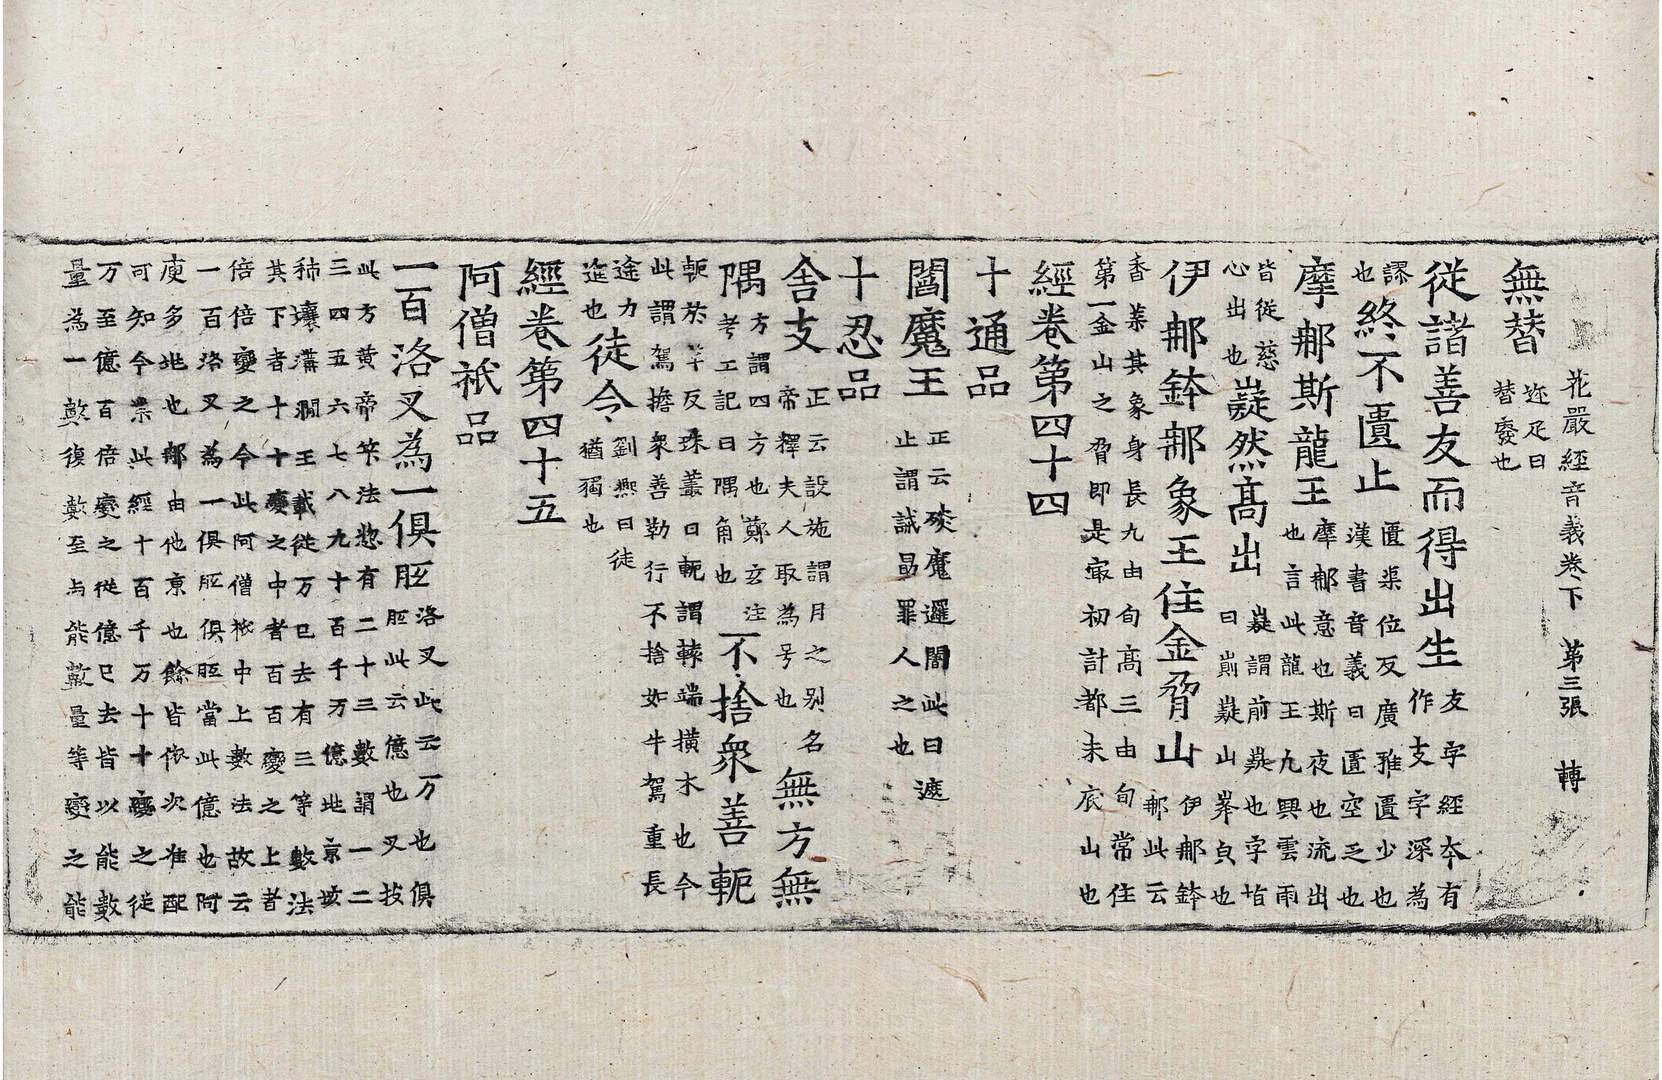 花嚴經音義卷下 第三張 轉
無替 迩疋曰替廢也
從諸善友而得出生 友字經本有作支字深為
謬也 終不匱止 匱渠位反廣雅匱少也漢書音義曰匱空乏也
摩那斯龍王 摩那意也斯夜也流出也言此龍王九興雲雨
皆從慈心出也 嶷然高出 嶷謂前嶷也字皆曰崱嶷山峯皃也
伊那鉢那象王住金脅山 伊那鉢那此云
香葉其象身長九由旬高三由旬常住第一金山之脅即是最初計都末底山也
經卷第四十四
十通品
閻魔王 正云琰魔邏闍此曰遮止謂誡勗罪人之也
十忍品
舍支 正云設施謂月之別名帝釋夫人取為号也 無方無
隅 方謂四方也鄭玄注考工記曰隅角也 不捨衆善軛
軛於革反珠叢曰軛謂轅端橫木也今此謂駕擔衆善勒行不捨如牛駕重長
途力迤也 徒令 劉熙曰徒猶獨也
經卷第四十五
阿僧祇品
一百洛叉為一俱胝 洛叉此云万也俱胝此云億也又技
此方黄帝筭法惣有二十三數謂一二
三四五六七八九十百千万億地京垓
秭壤溝澗正載從万已去有三等數法
其下者十十變之中者百百變之上者
倍倍變之今此阿僧祇中上數法故云
一百洛叉為一俱胝俱胝當此億也阿
庾多地也那由他京也餘皆依次准配
可知今案此經十百千万十十變之從
万至億百倍變之從億已去皆以能數
量為一數復數至与能數量等變之能